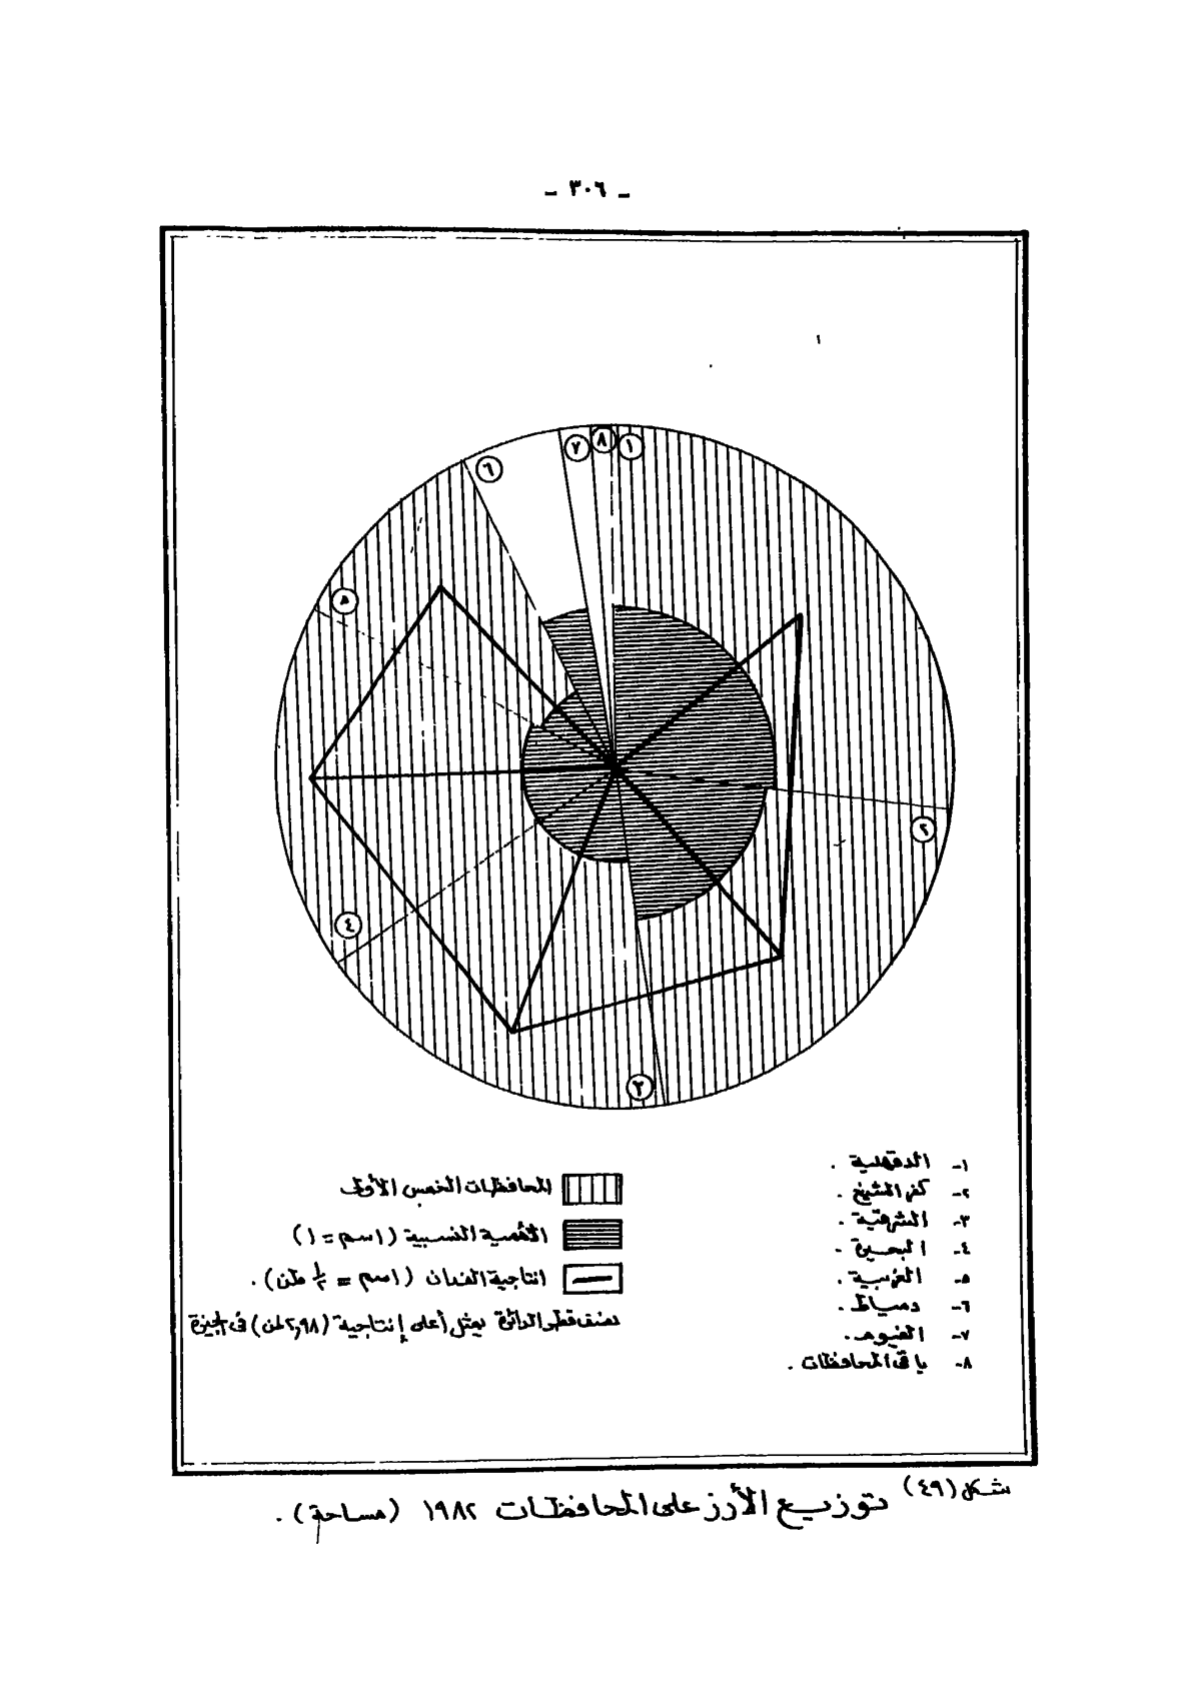 - ٣٠٦ -
١
٨
٧
٦
٥
٢
٤
٣
١- الدقهلية .
٢- كفر الشيخ .
٣- الشرقية .
٤- البحيرة .
٥- الغربية .
٦- دمياط .
٧- الفيوم .
٨- باقى المحافظات .
المحافظات الخمس الأولى
الأهمية النسبية (١سم = ١)
انتاجية الفدان (١سم = ١/٢ طن) .
نصف قطر الدائرة يمثل أعلى إنتاجية (٢,٩٨ طن) فى الجيزة
شكل (٤٩) توزيع الأرز على المحافظات ١٩٨٢ (مساحة) .